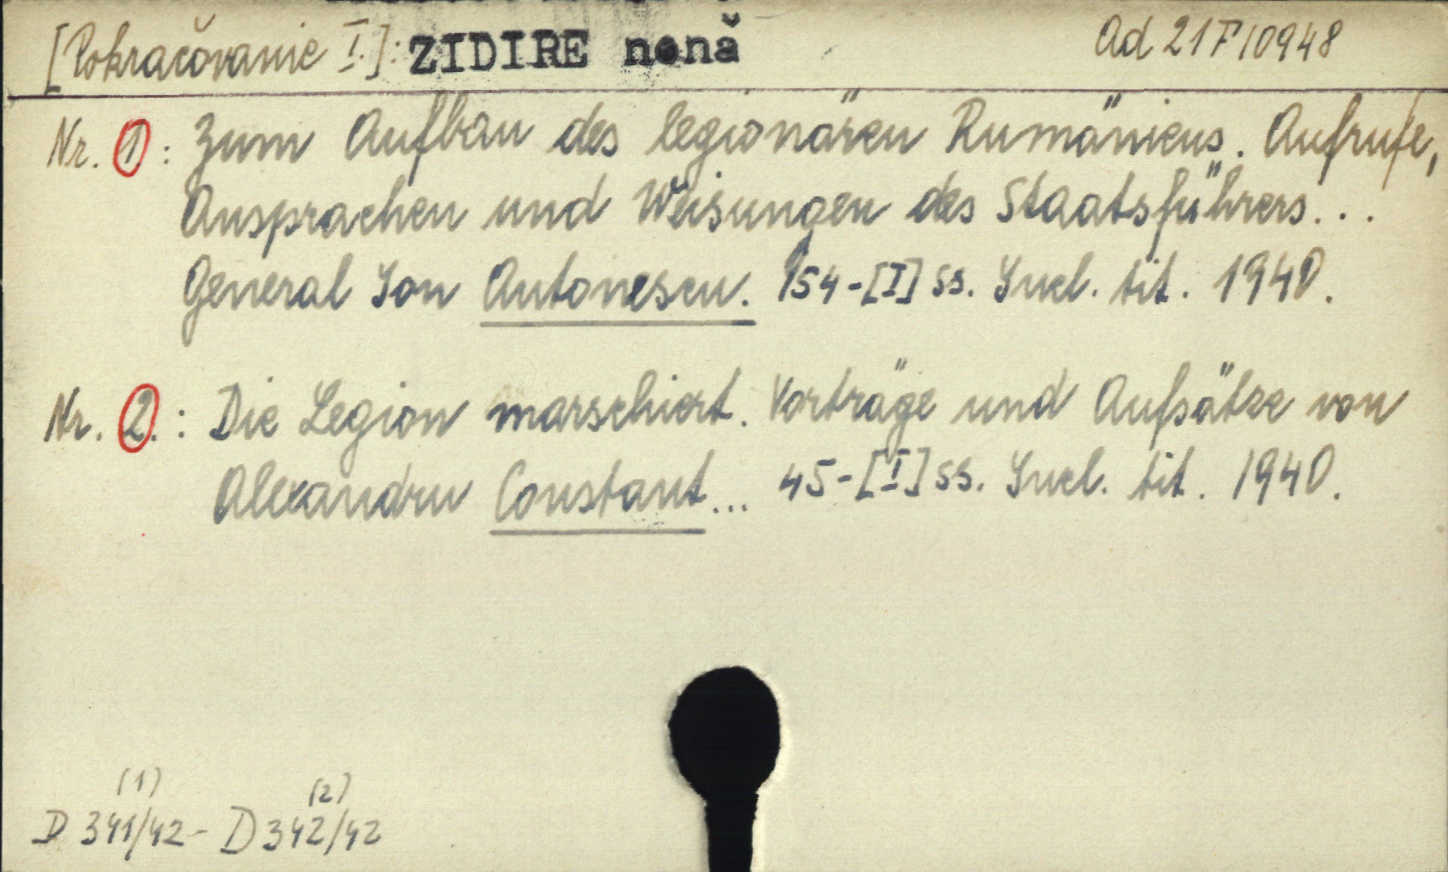 [Pokračovanie I.]: ZIDIRE nonă Ad 21 F 10948
Nr. 1: Zum Aufbau des legionären Rumäniens. Aufrufe,
Ansprachen und Weisungen des Staatsführers...
General Ion Antonescu. 154-[I] ss. Incl. tit. 1940.
Nr. 2.: Die Legion marschiert. Vorträge und Aufsätze von
Alexandru Constant... 45-[I] ss. Incl. tit. 1940.
(1) (2)
D 341/42 - D 342/42